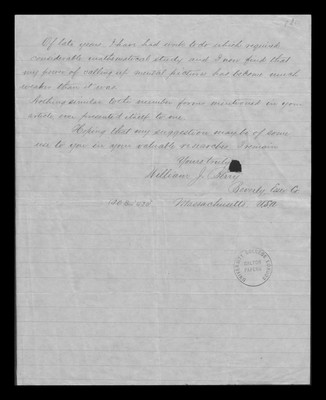 Of late years, I have had work to do which required
considerable mathematical study, and I now find that
my power of calling up mental pictures has become much
weaker than it was.
Nothing similar to the number forms mentioned in your
article, ever presented itself to me.
Hoping that my suggestion may be of some
use to you in your valuable researches, I remain
Yours truly
William J.
Beverly, Essex Co
Massachusetts USA
GALTON
PAPERS